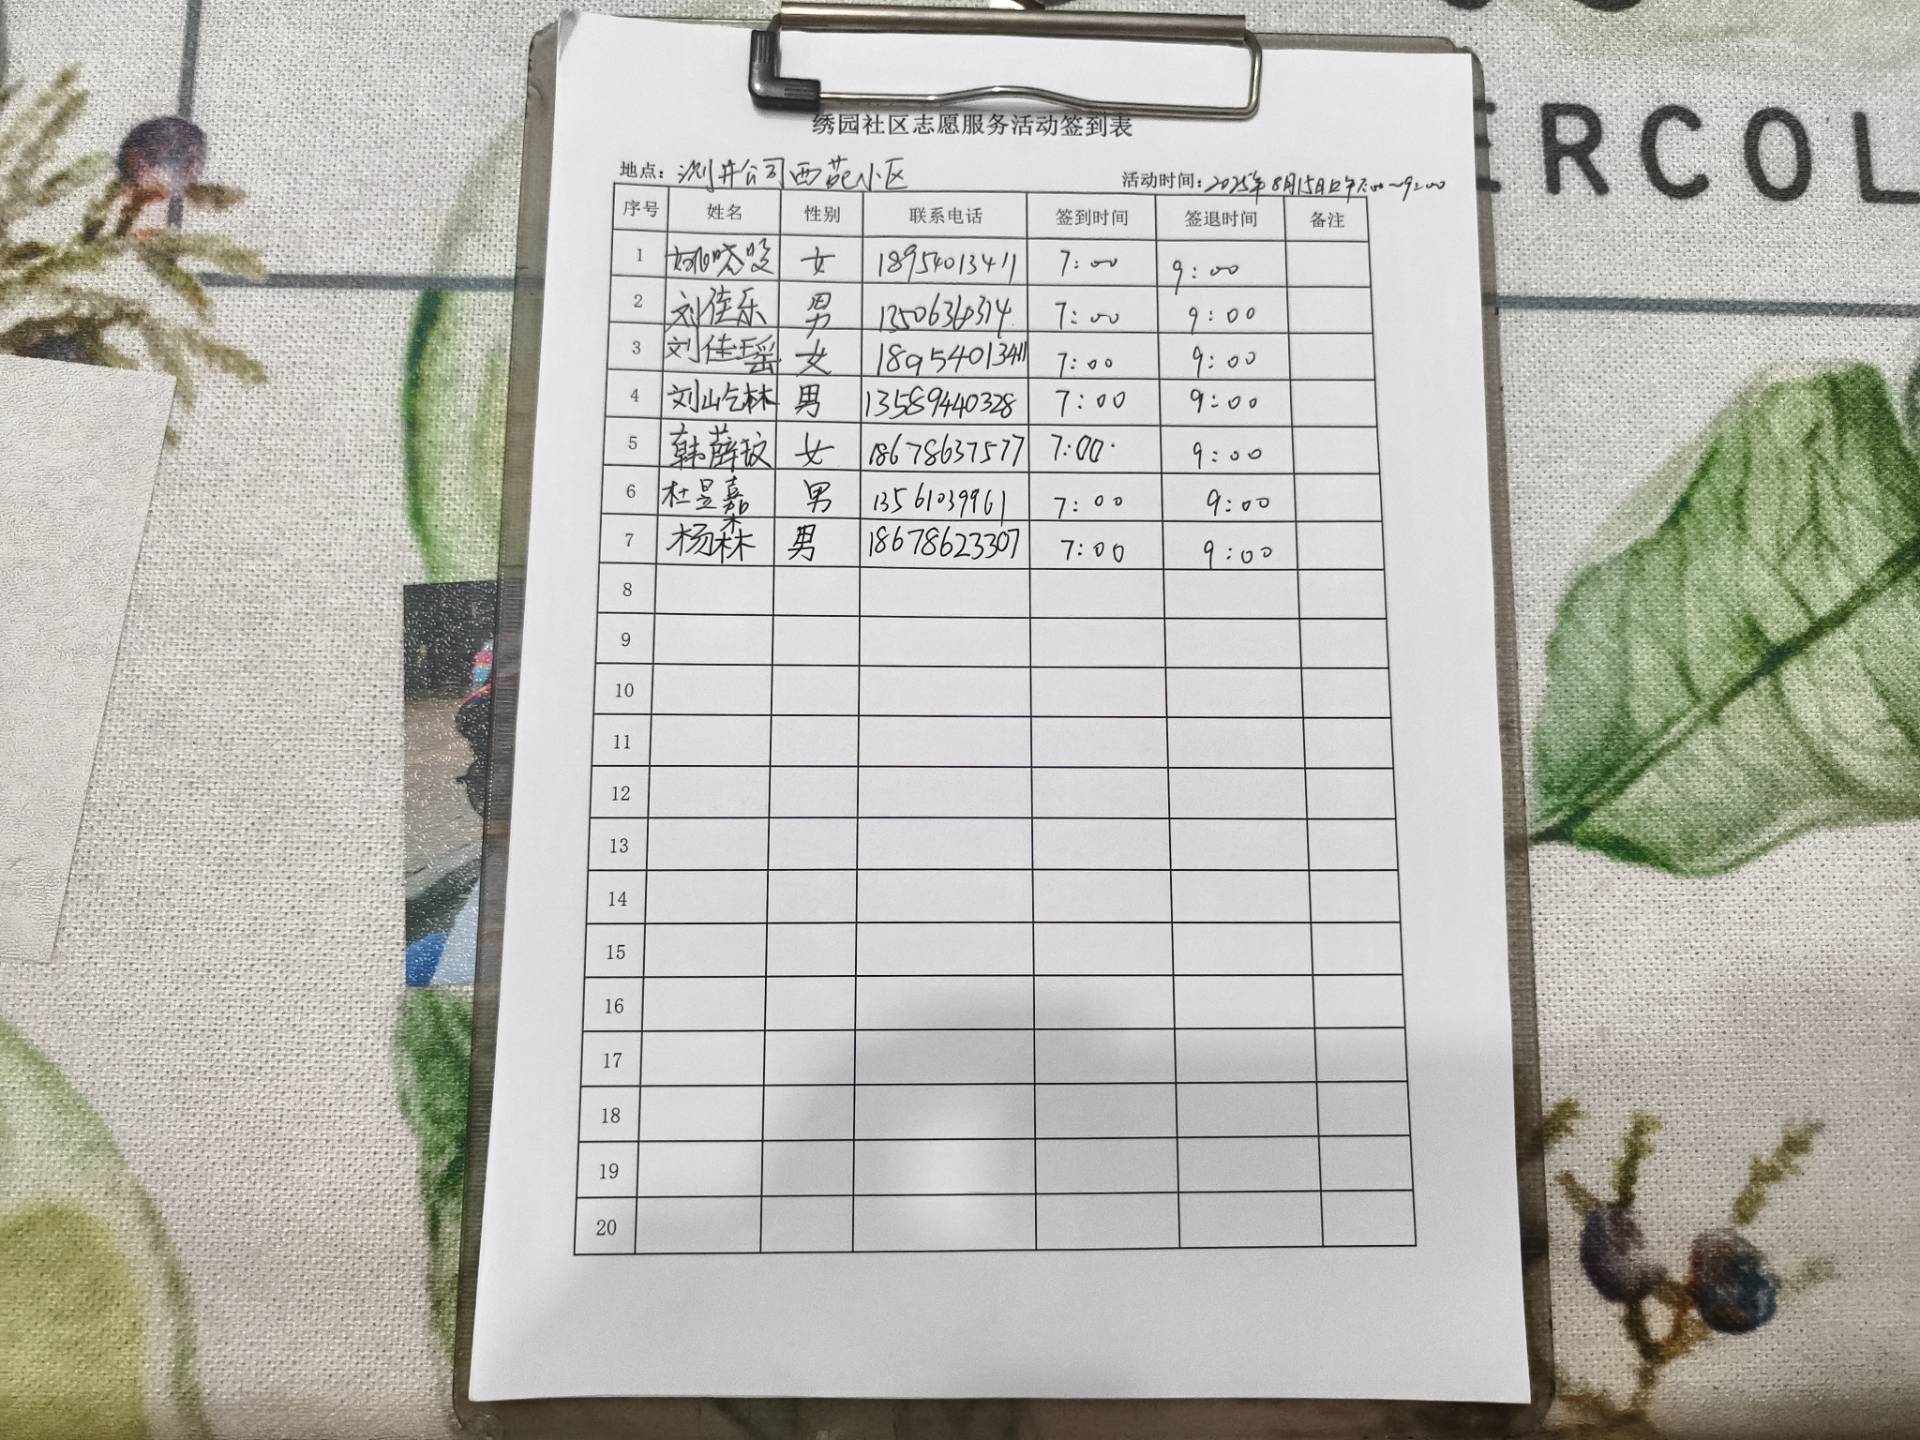 ERCOL
绣园社区志愿服务活动签到表
地点：测井公司西苑小区 活动时间：2025年8月15日上午7:00~9:00
序号 姓名 性别 联系电话 签到时间 签退时间 备注
1 女 18954013411 7:00 9:00
2 刘佳乐 男 7:00 9:00
3 刘佳瑶 女 18954013411 7:00 9:00
4 刘屹林 男 13589440328 7:00 9:00
5 韩薛玟 女 18678637577 7:00 9:00
6 杜昱嘉 男 13561039961 7:00 9:00
7 杨森 男 18678623307 7:00 9:00
8
9
10
11
12
13
14
15
16
17
18
19
20